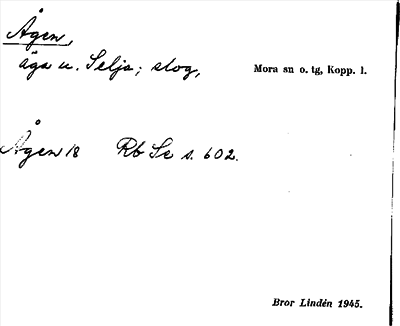 Ågen,
äga u. Selja; skog,
Mora sn o. tg, Kopp. l.
Ågen 18 Rb Se s. 602.
Bror Lindén 1945.